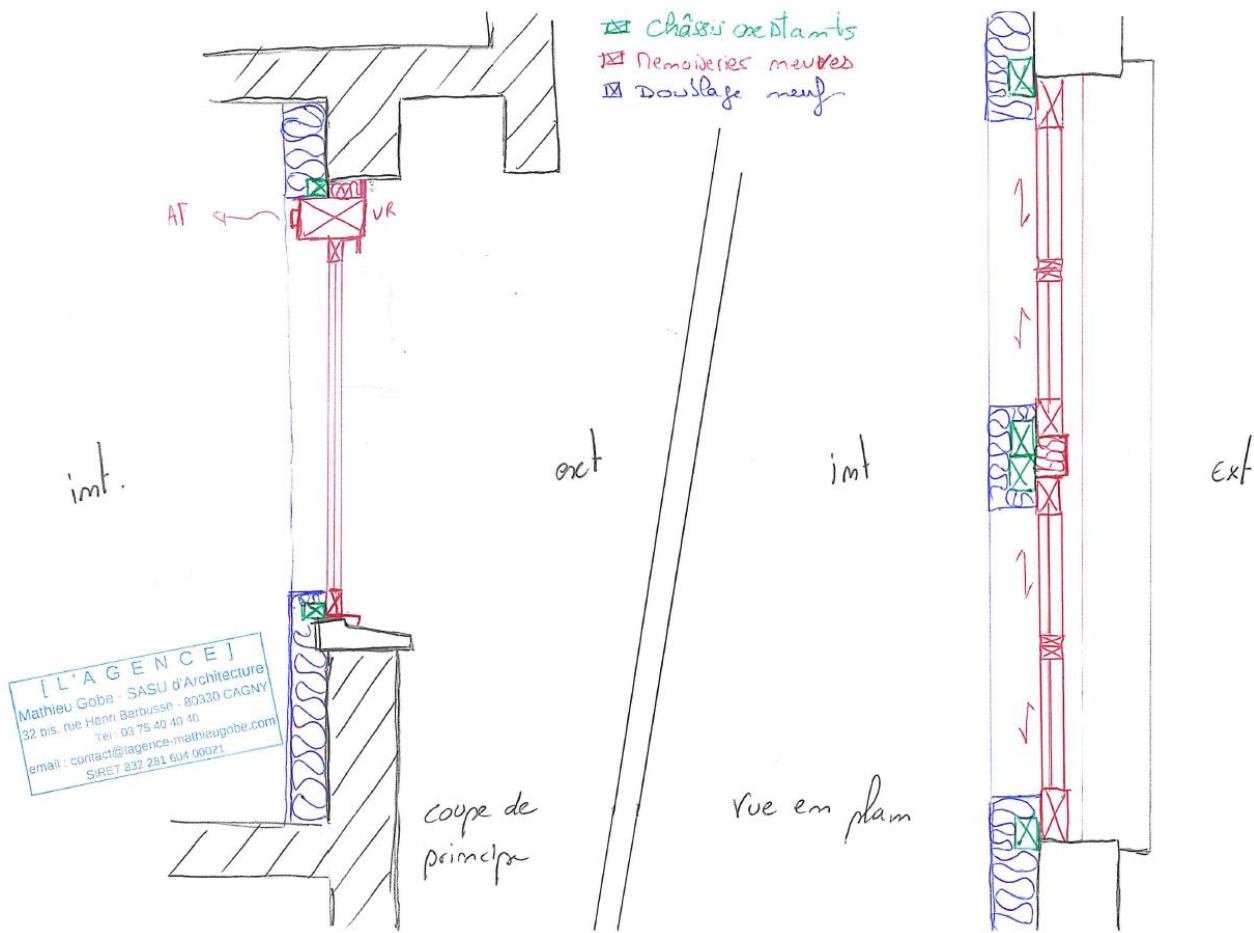 Châssis existants
Menuiseries neuves
Doublage neuf
AF
VR
int.
ext
int
Ext
[ L'AGENCE ]
Mathieu Gobe - SASU d'Architecture
32 bis, rue Henri Barbusse - 80330 CAGNY
Tél : 03 75 40 40 40
email : contact@lagence-mathieugobe.com
SIRET 832 281 604 00021
coupe de
principe
vue en plan